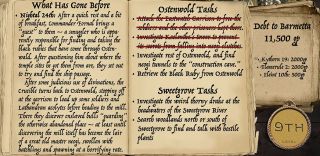 What Has Gone Before
• Nightal 24th: After a quick rest and a bit
of breakfast, Commander Fornal brings a
"guest" to them — a smuggler who is apparently
responsible for finding and taking the
black rubies that have come through Ostenwold.
After questioning him about where the
temple sites to get them from are, they set out
to try and find the ship passage.
• After some judicious use of divinations, the
Crucible turns back to Ostenwold, stopping at
the garrison to load up some soldiers and
Lathandran acolytes before heading to the mill.
There they discover enslaved hulls "guarding"
the otherwise abandoned place — at least until
discovering the mill itself has become the lair
of a great old master neogi, swollen with
hatchlings and spawning at a horrifying rate.
Ostenwold Tasks
• Attack the Eastwatch Garrison to free the
soldiers and the other prisoners kept there.
• Investigate Ostenwold's
its secrets from falling into neogi clutches.
• Investigate rest of Ostenwold, and find
neogi tunnels to the "construction cave."
• Retrieve the Black Ruby from Ostenwold
Sweetgrove Tasks
• Investigate the weird thorny drake at the
headwaters of the Sweetgrove River
• Search woodlands north or south of
Sweetgrove to find and talk with beastile
plants
Debt to Barnetta
11,500 gp
• Kythorn 19: 2000gp
• Flamerule 2: 2000gp
• Eleint 10th: 500gp
9TH
LEVEL